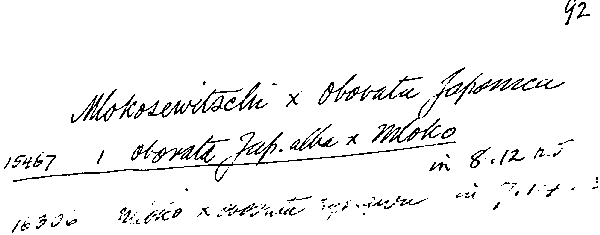 92
Mlokosewitschi x obovata Japonica
15467 1 obovata Jap. alba x Mloko
in 8.12 n.5
16306 Mloko x obovata in